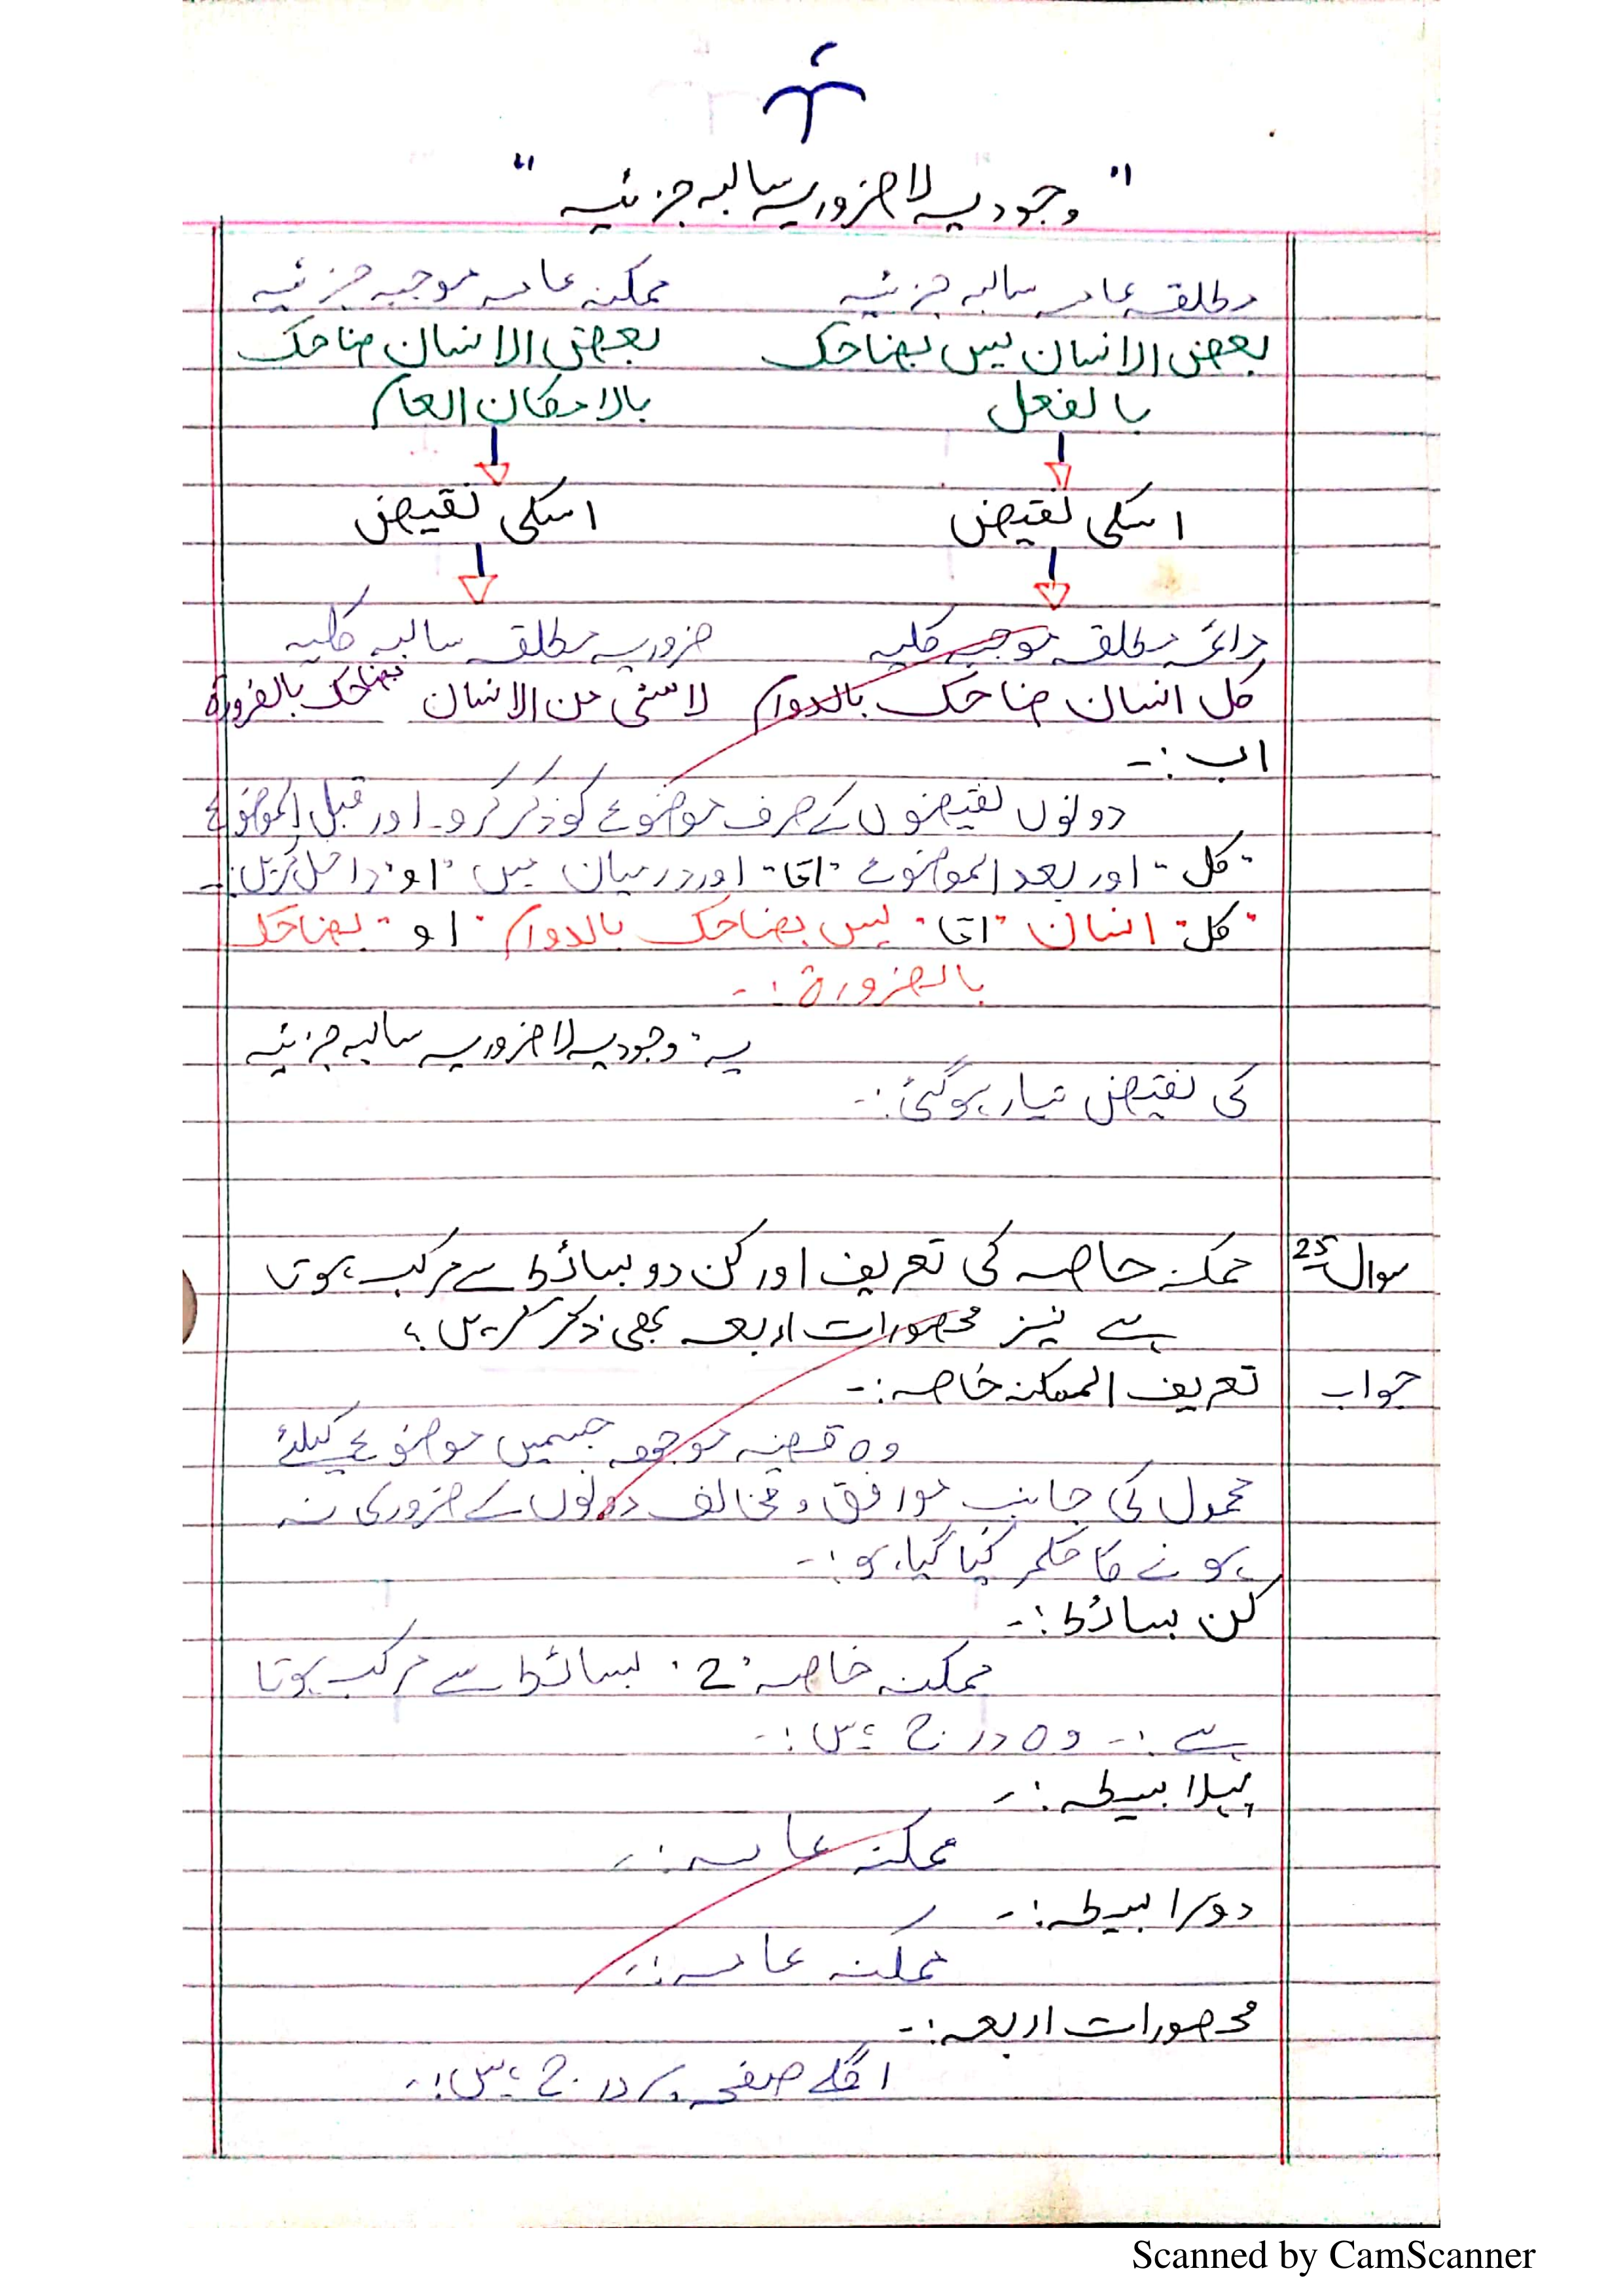 "وجودیہ لا ضروریہ سالبہ جزئیہ"
مطلقہ عامہ سالبہ جزئیہ ممکنہ عامہ موجبہ جزئیہ
بعض الانسان لیس بضاحک بعض الانسان ضاحک
بالفعل بالامکان العام
اسکی نقیض اسکی نقیض
دائمہ مطلقہ موجبہ کلیہ ضروریہ مطلقہ سالبہ کلیہ
کل انسان ضاحک بالدوام لا شئی من الانسان بضاحک بالضرورۃ
اب :-
دونوں نقیضوں کے صرف موضوع کو ذکر کرو۔ اور قبل الموضوع
"کل" اور بعد الموضوع "اما" اور درمیان میں "او" داخل کریں :-
"کل" انسان "اما" لیس بضاحک بالدوام "او" بضاحک
بالضرورۃ :-
یہ "وجودیہ لا ضروریہ سالبہ جزئیہ
کی نقیض تیار ہوگئی :-
سوال 25 ممکنہ خاصہ کی تعریف اور کن دو بسائط سے مرکب ہوتا
ہے نیز محصورات اربعہ بھی ذکر کریں؟
جواب تعریف الممکنہ خاصہ :-
وہ قضیہ موجھہ جسمیں موضوع کیلئے
محمول کی جانب موافق و مخالف دونوں کے ضروری نہ
ہونے کا حکم کیا گیا ہو :-
کن بسائط :-
ممکنہ خاصہ "2" بسائط سے مرکب ہوتا
ہے :- وہ درج ہیں :-
پہلا بسیطہ :-
ممکنہ عامہ :-
دوسرا بسیطہ :-
ممکنہ عامہ :-
محصورات اربعہ :-
اگلے صفحہ پر درج ہیں :-
Scanned by CamScanner